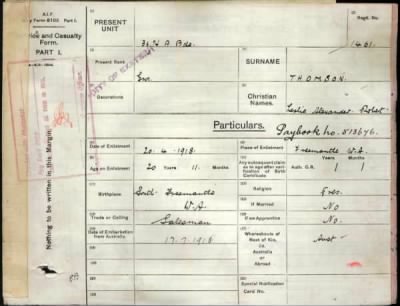 A.I.F.
Army Form B103 Part I.
Service and Casualty
Form.
PART I.
PRESENT
UNIT
36 H A Bde.
Regtl. No.
1401.
Present Rank
Gnr.
SURNAME
THOMSON.
Decorations
CHRISTIAN
NAMES.
Leslie Alexander Robert
Particulars.
Paybook no. 513676.
Nothing to be written in this Margin.
Date of Enlistment
20. 4. 1918.
Place of Enlistment
Freemantle W.A.
Age on Enlistment
20 Years 11. Months
Any subsequent claim
as to age after
verification of Birth
Certificate
Auth. G.R.
Years Months
Birthplace
Freemantle
W.A
Religion
Pres.
Trade or Calling
Salesman
If Married
No
If an Apprentice
No
Date of Embarkation
from Australia
17. 7. 1918
Whereabouts of
Next of Kin,
i.e.
Australia
or
Abroad
Aust.
Special Notification
Card No.